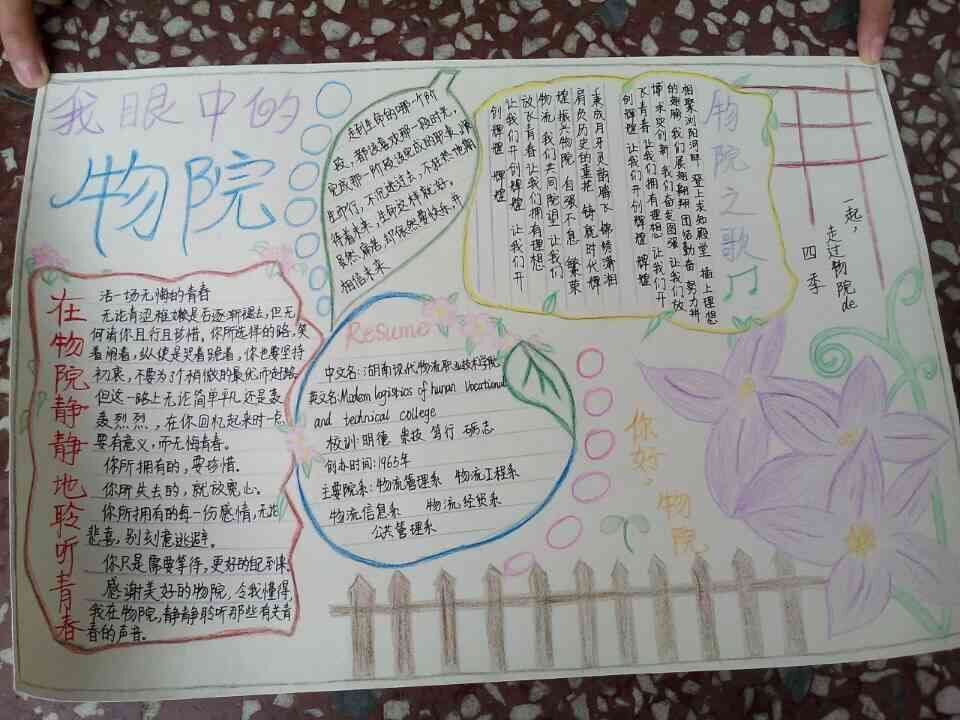 我眼中的
物院
走到生命的哪一个阶
段，都该喜欢那一段时光，
完成那一阶段该完成的职责，顺
生而行，不沉迷过去，不狂热地期
待着未来，生命这样就好。
相信未来
物院之歌
相聚浏阳河畔 登上求知殿堂 插上理想
的翅膀 我们展翅翱翔 团结勤奋 努力拼
博 求实创新 我们奋发图强 让我们放
飞青春 让我们拥有理想 让我们开
创辉煌 让我们开创辉煌 辉煌
肩负历史的重托 铸就时代辉
煌 振兴物院 自强不息 繁荣
物流 我们共同院望 让我们
放飞青春 让我们拥有理想
让我们开创辉煌 让我们开
创辉煌 辉煌
一起，
走过物院de
四季
在物院静静地聆听青春
活一场无悔的青春
无论青涩稚嫩是否逐渐褪去，但无
何请你且行且珍惜。你所选择的路，笑
着闹着，纵使是哭着跪着，你也要坚持
初衷，不要为了稍微的最优而赶路
但这一路上无论简单平凡还是轰
轰烈烈，在你回忆起来时一点
要有意义，而无悔青春。
你所拥有的，要珍惜。
你所失去的，就放宽心。
你所拥有的每一份感情，无论
悲喜，别刻意逃避。
你只是需要等待，更好的纪念来
感谢美好的物院，令我懂得，
我在物院，静静聆听那些有关青
春的声音。
Resume
中文名：湖南现代物流职业技术学院
英文名：Modern logistics of hunan vocational
and technical college
校训：明德 崇技 笃行 砺志
创办时间：1965年
主要院系：物流管理系 物流工程系
物流信息系 物流经贸系
公共管理系
你好，物院